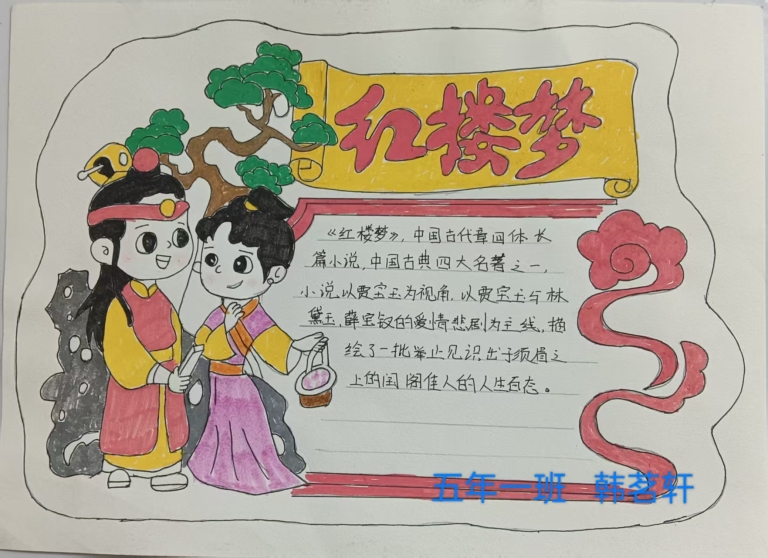 红楼梦
《红楼梦》,中国古代章回体长
篇小说,中国古典四大名著之一,
小说以贾宝玉为视角,以贾宝玉与林
黛玉、薛宝钗的爱情悲剧为主线,描
绘了一批举止见识出于须眉之
上的闺阁佳人的人生百态。
五年一班 韩茗轩